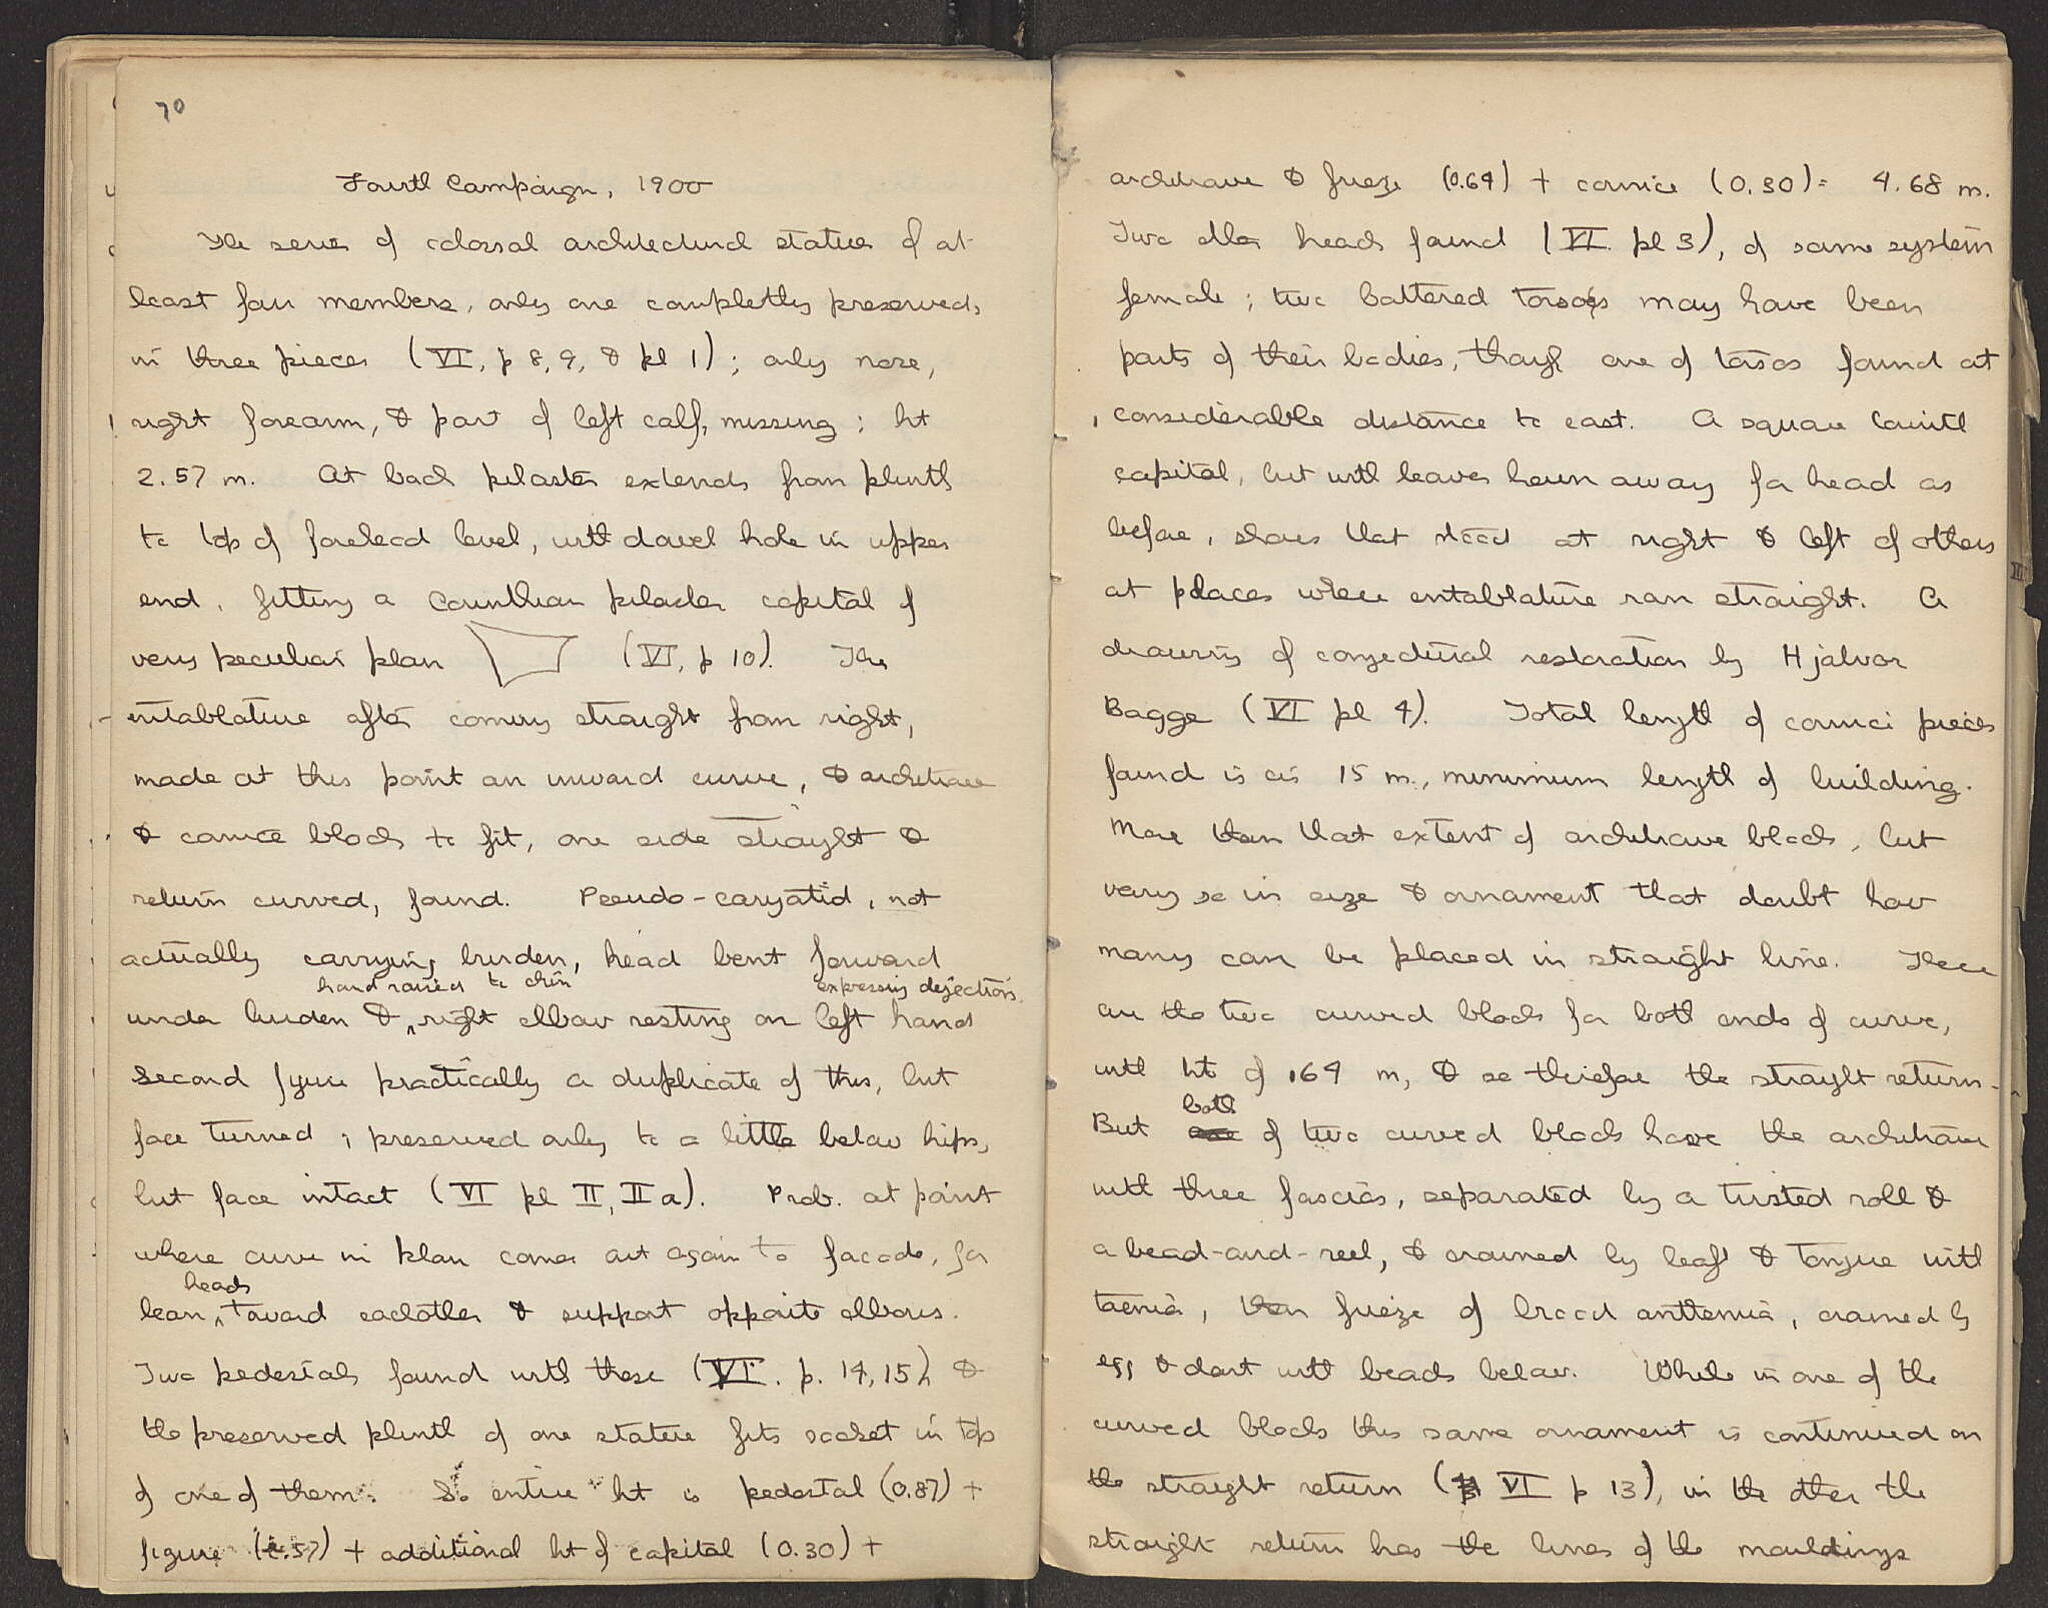 70
Fourth Campaign, 1900
The series of colossal architectural statues of at
least four members, only one completely preserved,
in three pieces (VI, p 8, 9, & pl 1); only nose,
right forearm, & part of left calf, missing; ht
2.57 m. At back pilaster extends from plinth
to top of forehead level, with dowel hole in upper
end, fitting a Corinthian pilaster capital of
very peculiar plan (VI, p 10). The
entablature after coming straight from right,
made at this point an inward curve, & architrave
& cornice blocks to fit, one side straight &
return curved, found. Pseudo-caryatid, not
actually carrying burden, head bent forward
hand raised to chin expressing dejection.
under burden & right elbow resting on left hand
Second figure practically a duplicate of this, but
face turned; preserved only to a little below hips,
but face intact (VI pl II, IIa). Prob. at point
where curve in plan comes out again to facade, for
heads
lean toward eachother & support opposite elbows.
Two pedestals found with these (VI. p. 14, 15), &
the preserved plinth of one statue fits socket in top
of one of them. So entire ht is pedestal (0.87) +
figure (2.57) + additional ht of capital (0.30) +
architrave & frieze (0.64) + cornice (0.30) = 4.68 m.
Two other heads found (VI. pl 3), of same system
female; two battered torsos may have been
parts of their bodies, though one of torsos found at
considerable distance to east. A square Corinth
capital, but with leaves hewn away for head as
before, shows that stood at right & left of others
at places where entablature ran straight. A
drawing of conjectural restoration by Hjalvar
Bagge (VI pl 4). Total length of cornice pieces
found is ca 15 m., minimum length of building.
More than that extent of architrave blocks, but
vary so in size & ornament that doubt how
many can be placed in straight line. There
are the two curved blocks for both ends of curve,
with ht of .64 m, & so therefore the straight return.
both
But one of two curved blocks have the architrave
with three fascias, separated by a twisted roll &
a bead-and-reel, & crowned by leaf & tongue with
taenia, then frieze of broad anthemia, crowned by
egg & dart with beads below. While in one of the
curved blocks this same ornament is continued on
the straight return (VI p 13), in the other the
straight return has the lines of the mouldings